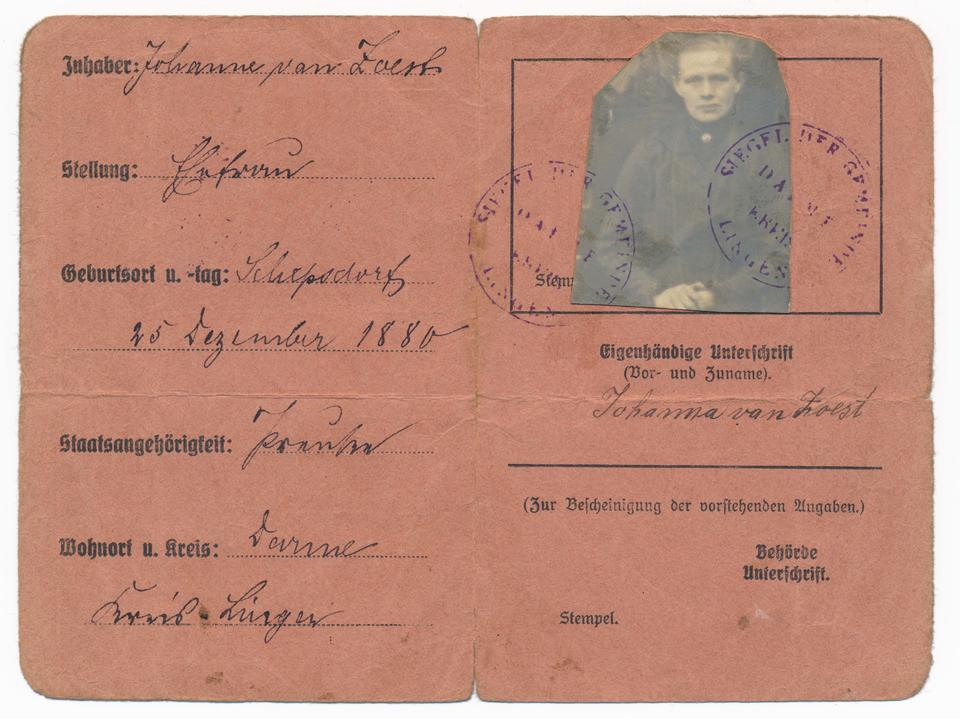 Inhaber: Johanne van Zoest
Stellung: Ehefrau
Geburtsort u. -tag: Schepsdorf
25 Dezember 1880
Staatsangehörigkeit: Preuße
Wohnort u. Kreis: Darme
Kreis Lingen
SIEGEL DER GEMEINDE
LINGEN
SIEGEL DER GEMEINDE
KREIS
LINGEN
Eigenhändige Unterschrift
(Vor- und Zuname).
Johanna van Zoest
(Zur Bescheinigung der vorstehenden Angaben.)
Behörde
Unterschrift.
Stempel.